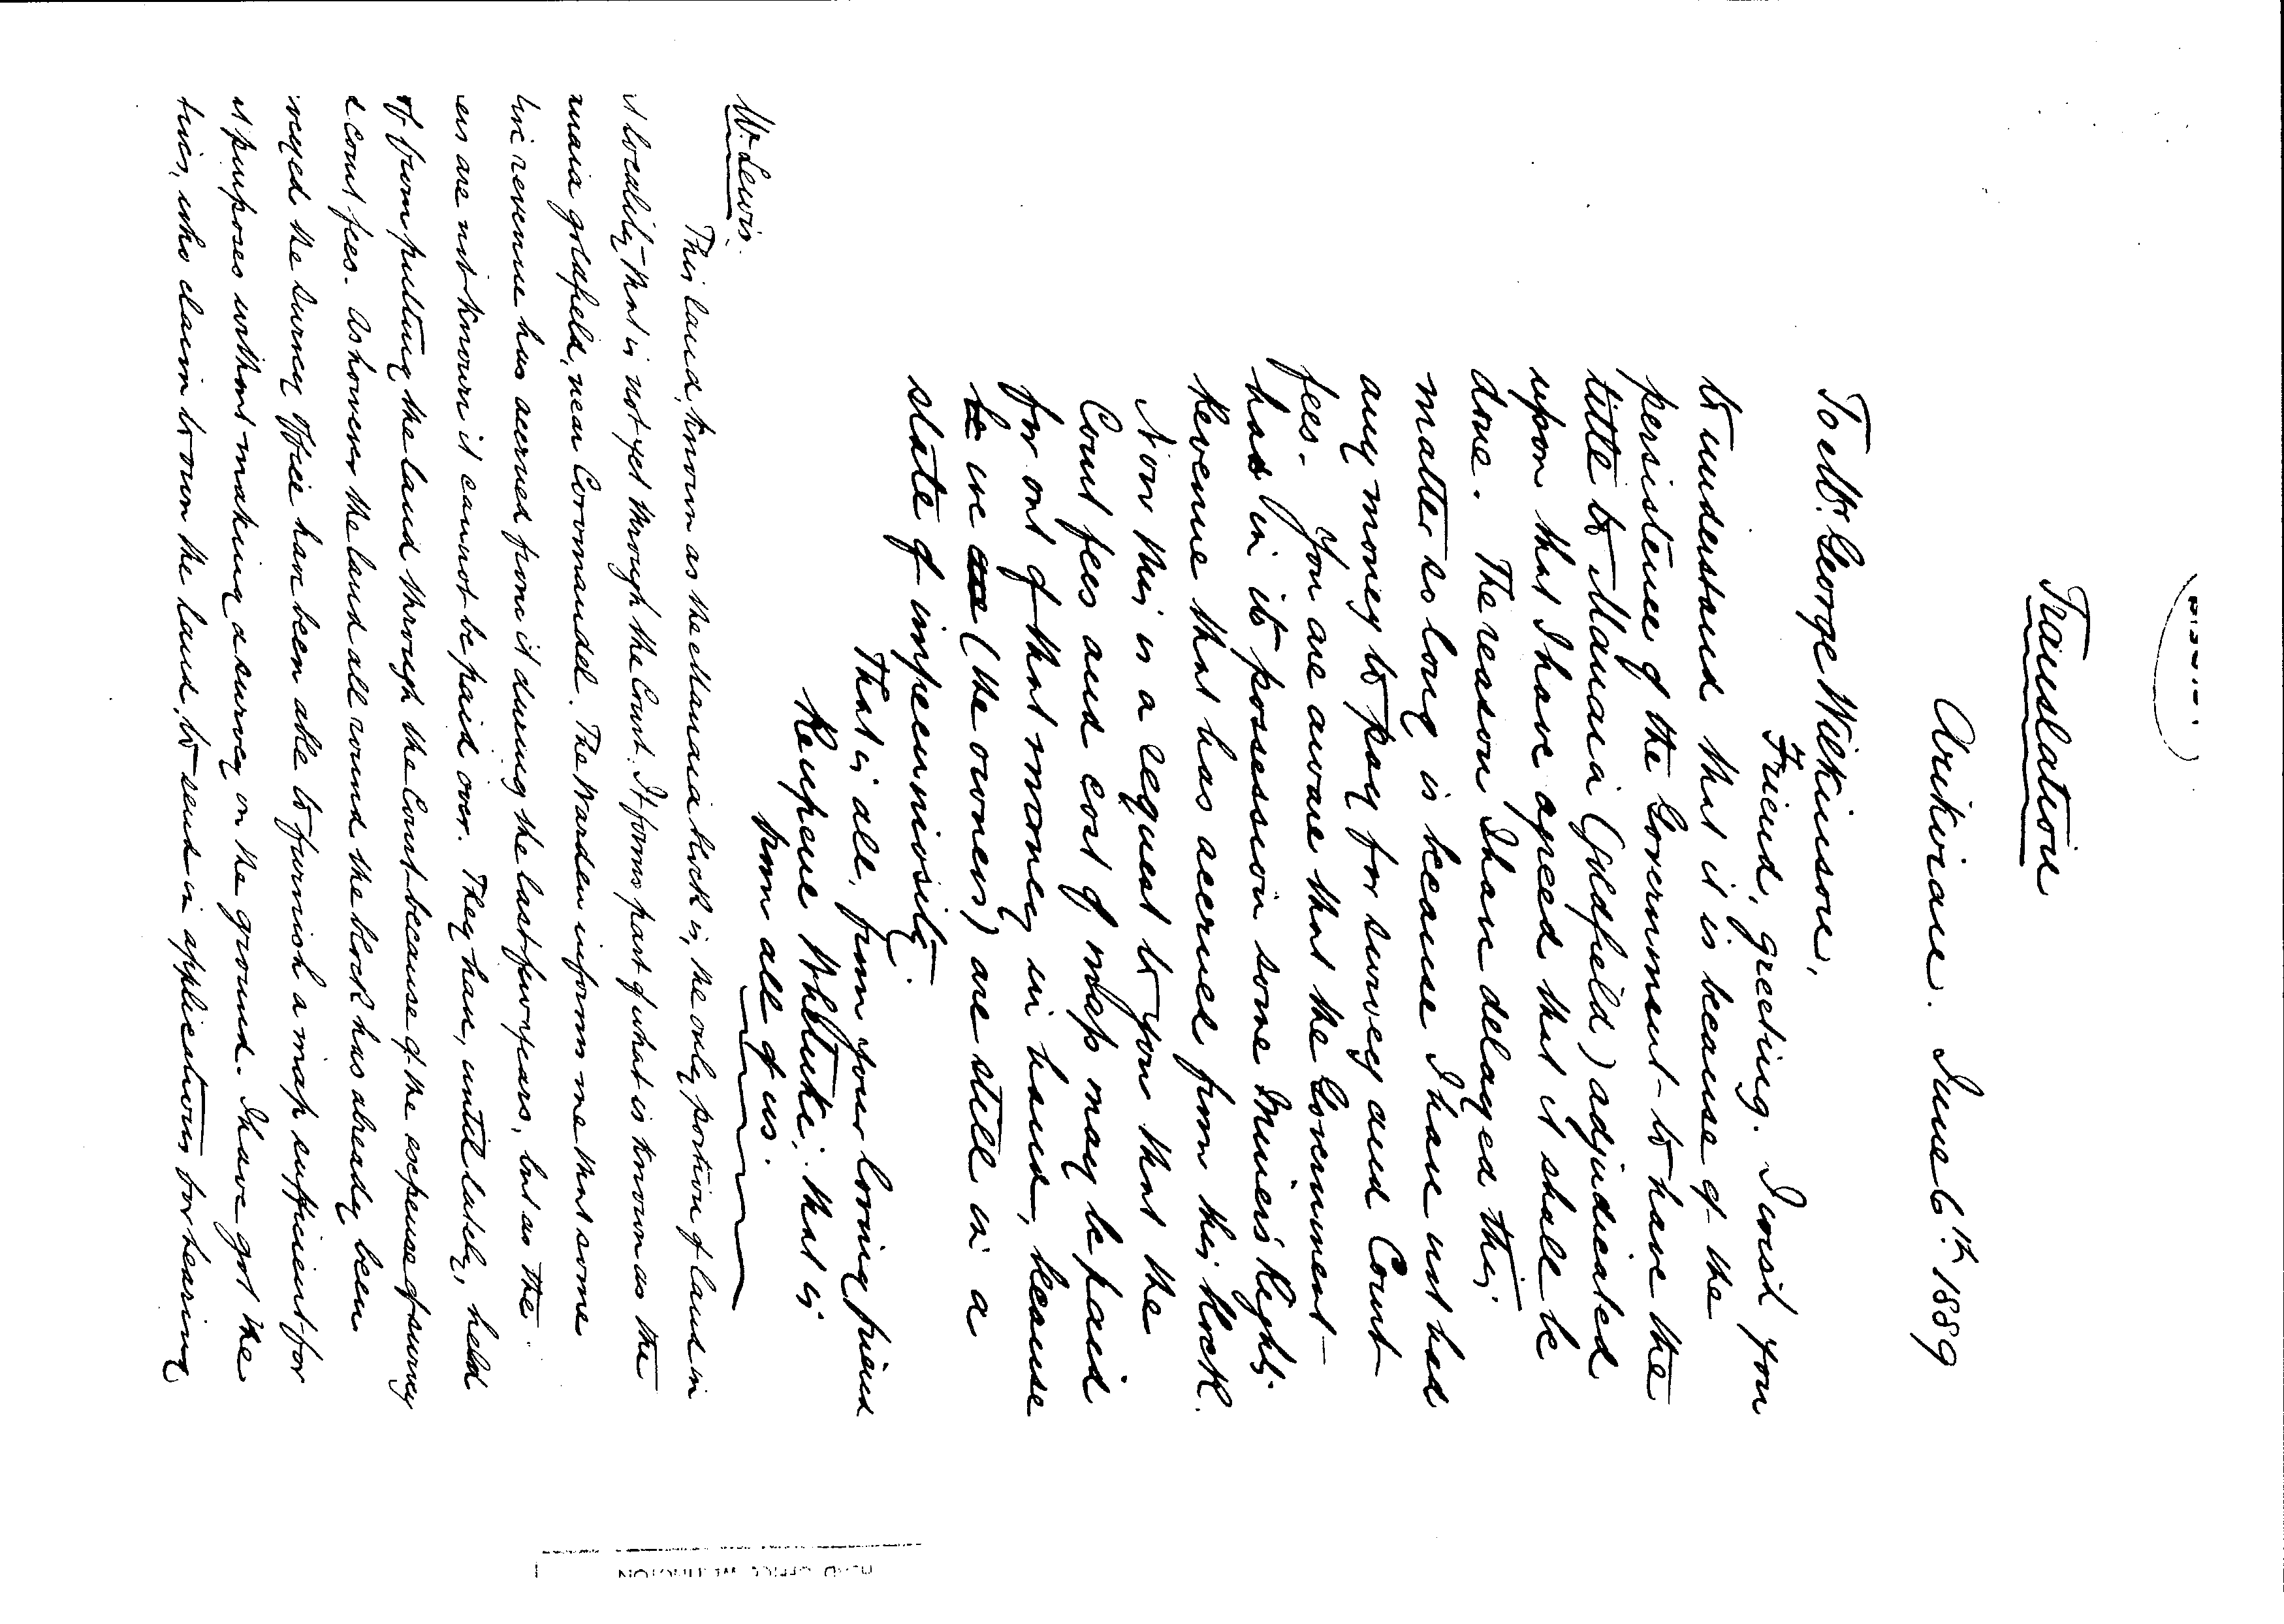 Translation
Arikirau. June 6th 1889
To Mr. George Wilkinson,
Friend, greeting. I wish you
to understand that it is because of the
persistence of the Government to have the
title to Manaia (Goldfield) adjudicated
upon that I have agreed that it shall be
done. The reason I have delayed this
matter so long is because I have not had
any money to pay for survey and Court
fees. You are aware that the Government
has in its possession some Miner's Right
Revenue that has accrued from this block.
Now this is a request to you that the
Court fees and cost of map may be paid
for out of that money in hand, because
we (the owners) are still in a
state of impecuniosity.
That is all, from your loving friend
Reupene Whetuki; that is
from all of us.
W. Lewis.
This land, known as the Manaia block is, the only portion of land in
t locality that is not yet through the Court. It forms part of what is known as the
anaia goldfield, near Coromandel. The Warden informs me that some
tive revenue has accrued from it during the last few years, but as the
ers are not known it cannot be paid over. They have, until lately, held
from putting the land through the Court because of the expense of survey
d Court fees. As however the land all round the block has already been
rveyed the Survey Office have been able to furnish a map sufficient for
t purposes without making a survey on the ground. I have got the
tives, who claim to own the land, to send in applications for hearing
HEAD OFFICE WELLINGTON